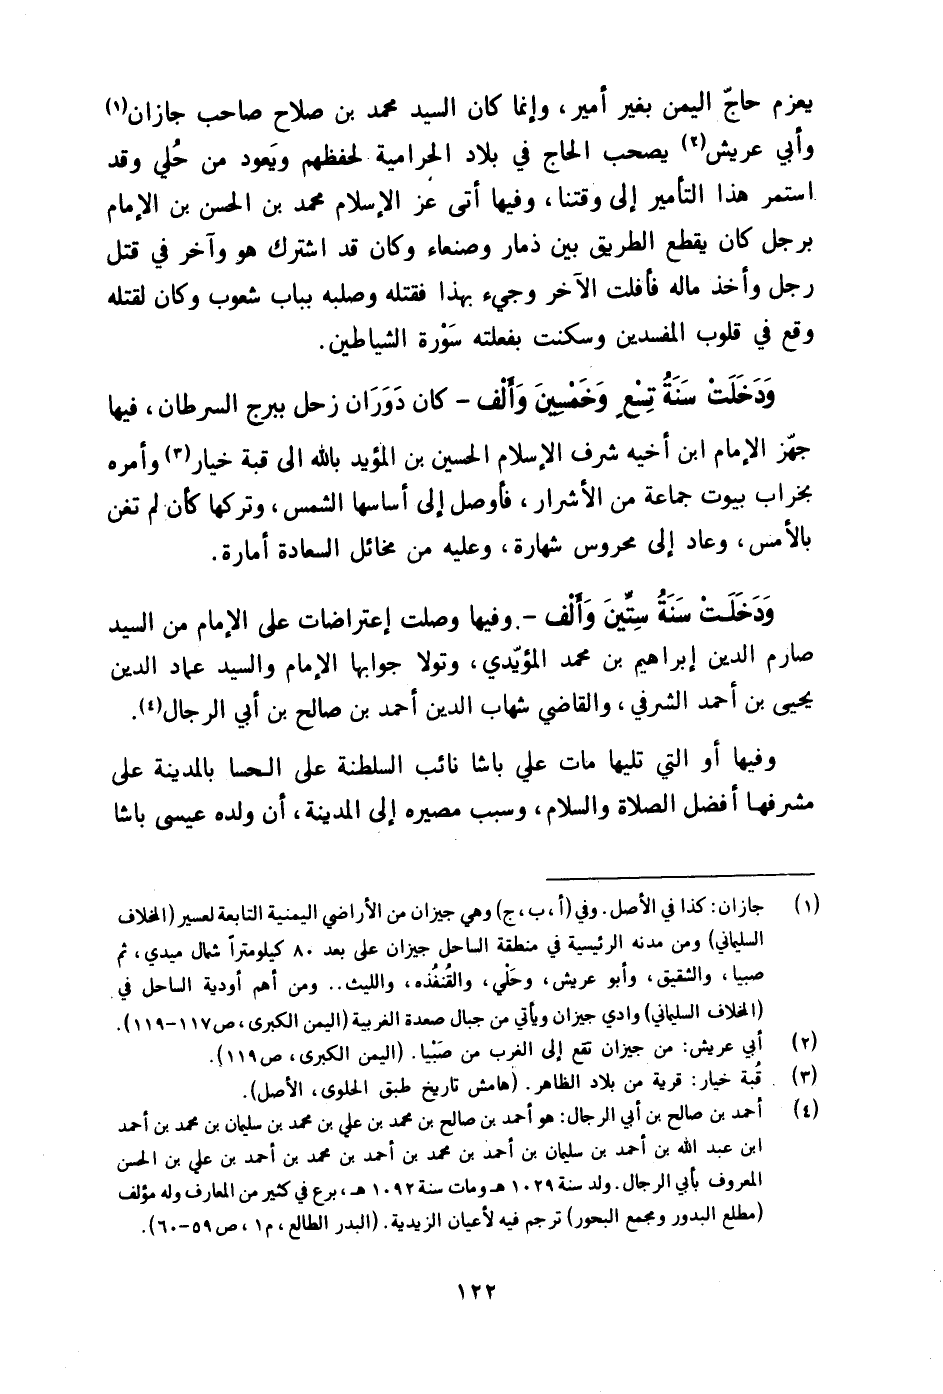 يعزم حاجّ اليمن بغير أمير، وإنما كان السيد محمد بن صلاح صاحب جازان(١)
وأبي عريش(٢) يصحب الحاج في بلاد الحرامية لحفظهم ويَعود من حُلي وقد
استمر هذا التأمير إلى وقتنا، وفيها أتى عز الإسلام محمد بن الحسن بن الإمام
برجل كان يقطع الطريق بين ذمار وصنعاء وكان قد اشترك هو وآخر في قتل
رجل وأخذ ماله فأفلت الآخر وجيء بهذا فقتله وصلبه بباب شعوب وكان لقتله
وقع في قلوب المفسدين وسكنت بفعلته سَوْرة الشياطين.
وَدَخَلَتْ سَنَةُ تِسْعٍ وَخَمْسِينَ وَأَلْف - كان دَوَرَان زحل ببرج السرطان، فيها
جهّز الإمام ابن أخيه شرف الإسلام الحسين بن المؤيد بالله الى قبة خيار(٣) وأمره
بخراب بيوت جماعة من الأشرار، فأوصل إلى أساسها الشمس، وتركها كأن لم تغن
بالأمس، وعاد إلى محروس شهارة، وعليه من مخائل السعادة أمارة.
وَدَخَلَتْ سَنَةُ سِتّينَ وَأَلْف -. وفيها وصلت إعتراضات على الإمام من السيد
صارم الدين إبراهيم بن محمد المؤيّدي، وتولا جوابها الإمام والسيد عماد الدين
يحيى بن أحمد الشرفي، والقاضي شهاب الدين أحمد بن صالح بن أبي الرجال(٤).
وفيها أو التي تليها مات علي باشا نائب السلطنة على الحسا بالمدينة على
مشرفها أفضل الصلاة والسلام، وسبب مصيره إلى المدينة، أن ولده عيسى باشا
(١) جازان: كذا في الأصل. وفي (أ، ب، ج) وهي جيزان من الأراضي اليمنية التابعة لعسير (المخلاف
السليماني) ومن مدنه الرئيسية في منطقة الساحل جيزان على بعد ٨٠ كيلومتراً شمال ميدي، ثم
صبيا، والشقيق، وأبو عريش، وحَلْي، والقُنفُذه، والليث.. ومن أهم أودية الساحل في
(المخلاف السليماني) وادي جيزان ويأتي من جبال صعدة الغربية (اليمن الكبرى، ص١١٧-١١٩).
(٢) أبي عريش: من جيزان تقع إلى الغرب من صَبْيا. (اليمن الكبرى، ص١١٩).
(٣) قُبة خيار: قرية من بلاد الظاهر. (هامش تاريخ طبق الحلوى، الأصل).
(٤) أحمد بن صالح بن أبي الرجال: هو أحمد بن صالح بن محمد بن علي بن محمد بن سليمان بن محمد بن أحمد
ابن عبد الله بن أحمد بن سليمان بن أحمد بن محمد بن أحمد بن محمد بن أحمد بن علي بن الحسن
المعروف بأبي الرجال. ولد سنة ١٠٢٩ هـ ومات سنة ١٠٩٢ هـ، برع في كثير من المعارف وله مؤلف
(مطلع البدور ومجمع البحور) ترجم فيه لأعيان الزيدية. (البدر الطالع، م١، ص٥٩-٦٠).
١٢٢